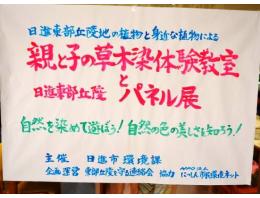 日進東部丘陵地の植物と身近な植物による
親と子の草木染体験教室
と
日進東部丘陵 パネル展
自然を染めて遊ぼう!自然の色の美しさを知ろう!
主催 日進市環境課
企画運営 東部丘陵を守る連絡会 協力 にっしん市民環境ネット